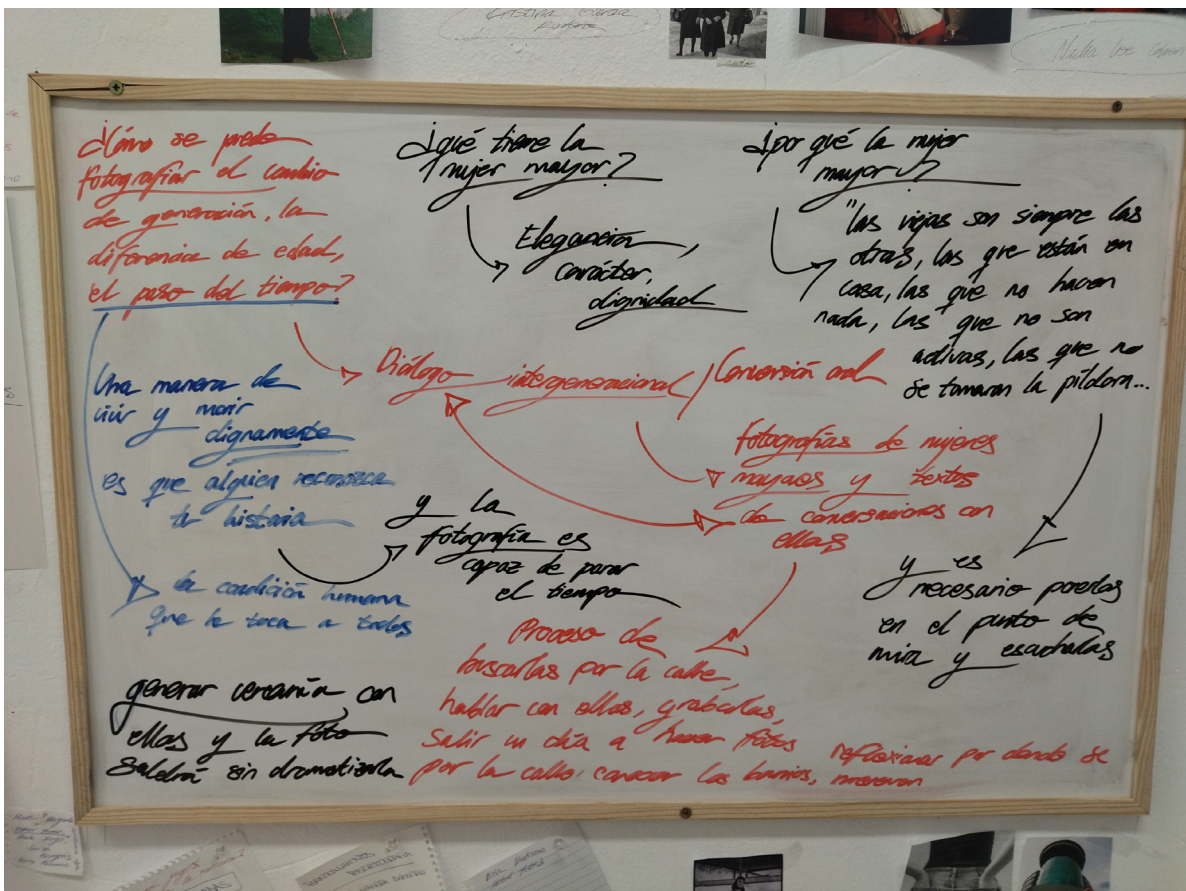 Cristina García
¿Cómo se puede
fotografiar el cambio
de generación, la
diferencia de edad,
el paso del tiempo?
¿qué tiene la
mujer mayor?
Elegancia,
carácter,
dignidad
¿por qué la mujer
mayor?
"las viejas son siempre las
otras, las que están en
casa, las que no hacen
nada, las que no son
activas, las que no
se tomaron la píldora...
Diálogo intergeneracional / Conversión oral
Una manera de
vivir y morir
dignamente
es que alguien reconozca
tu historia
la condición humana
que le toca a todos
y la
fotografía es
capaz de parar
el tiempo
fotografías de mujeres
mayores y textos
de conversaciones con
ellas
y es
necesario ponerlas
en el punto de
mira y escucharlas
Proceso de
buscarlas por la calle,
hablar con ellas, grabarlas,
salir un día a hacer fotos
por la calle, conocer los barrios,
reflexionar por donde se
mueven
generar cercanía con
ellas y la foto
saldrá sin dramatizarla